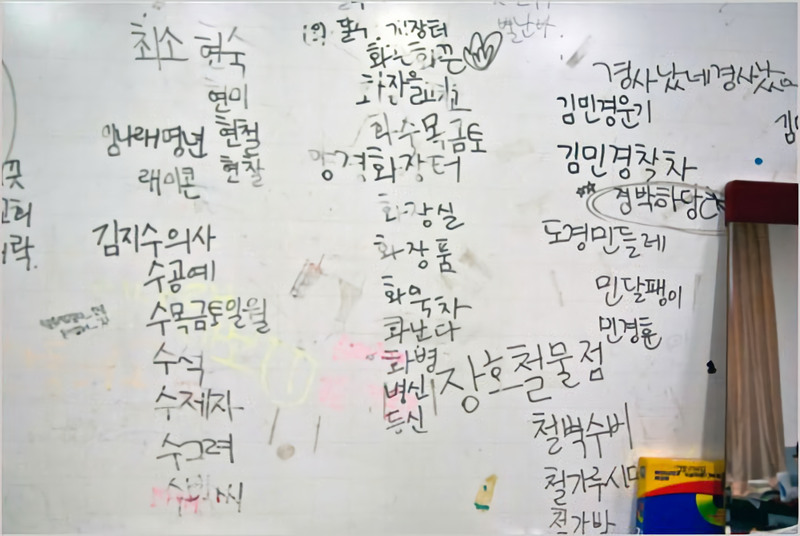 최소 현숙
현미
임나래 명년 현철
래미콘 현찰
김지수의사
수공예
수목금토일월
수석
수제자
수그려
꽃
교회
락.
화장터
화난화끈
화장을 고치고
화수목금토
망경화장터
화장실
화장품
화요일
화난다
화병
병신
등신
별난다.
경사났네 경사났
김민경운기
김민경착차
경박하당
도경민들레
민달팽이
민경훈
장호철물점
철벽수비
철가루
철가방